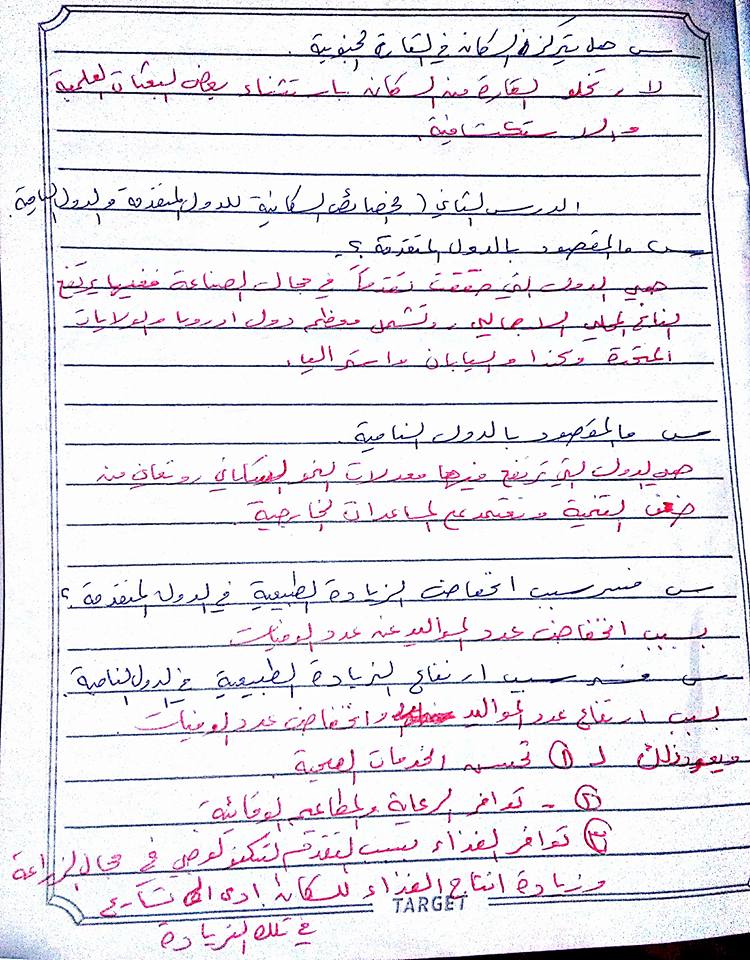 س هل يتركز السكان في القارة الجنوبية .
لا ، تخلو القارة من السكان باستثناء بعض البعثات العلمية
والاستكشافية.
الدرس الثاني ( الخصائص السكانية للدول المتقدمة والدول النامية.
س ما المقصود بالدول المتقدمة ؟.
هي الدول التي حققت تقدماً في مجال الصناعة ففيها يرتفع
الناتج المحلي الاجمالي ، وتشمل معظم دول اوروبا والولايات
المتحدة وكندا واليابان واستراليا.
س ما المقصود بالدول النامية.
هي الدول التي ترتفع فيها معدلات النمو السكاني وتعاني من
ضعف التنمية وتعتمد على المساعدات الخارجية
س فسر سبب انخفاض الزيادة الطبيعية في الدول المتقدمة ؟
بسبب انخفاض عدد المواليد عن عدد الوفيات
س فسر سبب ارتفاع الزيادة الطبيعية في الدول النامية.
بسبب ارتفاع عدد المواليد وانخفاض عدد الوفيات.
ويعود ذلك لـ ① تحسن الخدمات الصحية
② - توافر الرعاية والمطاعيم الوقائية
③ توافر الغذاء بسبب التقدم التكنولوجي في مجال الزراعة
وزيادة انتاج الغذاء للسكان ادى الى تسارع
TARGET
في تلك الزيادة